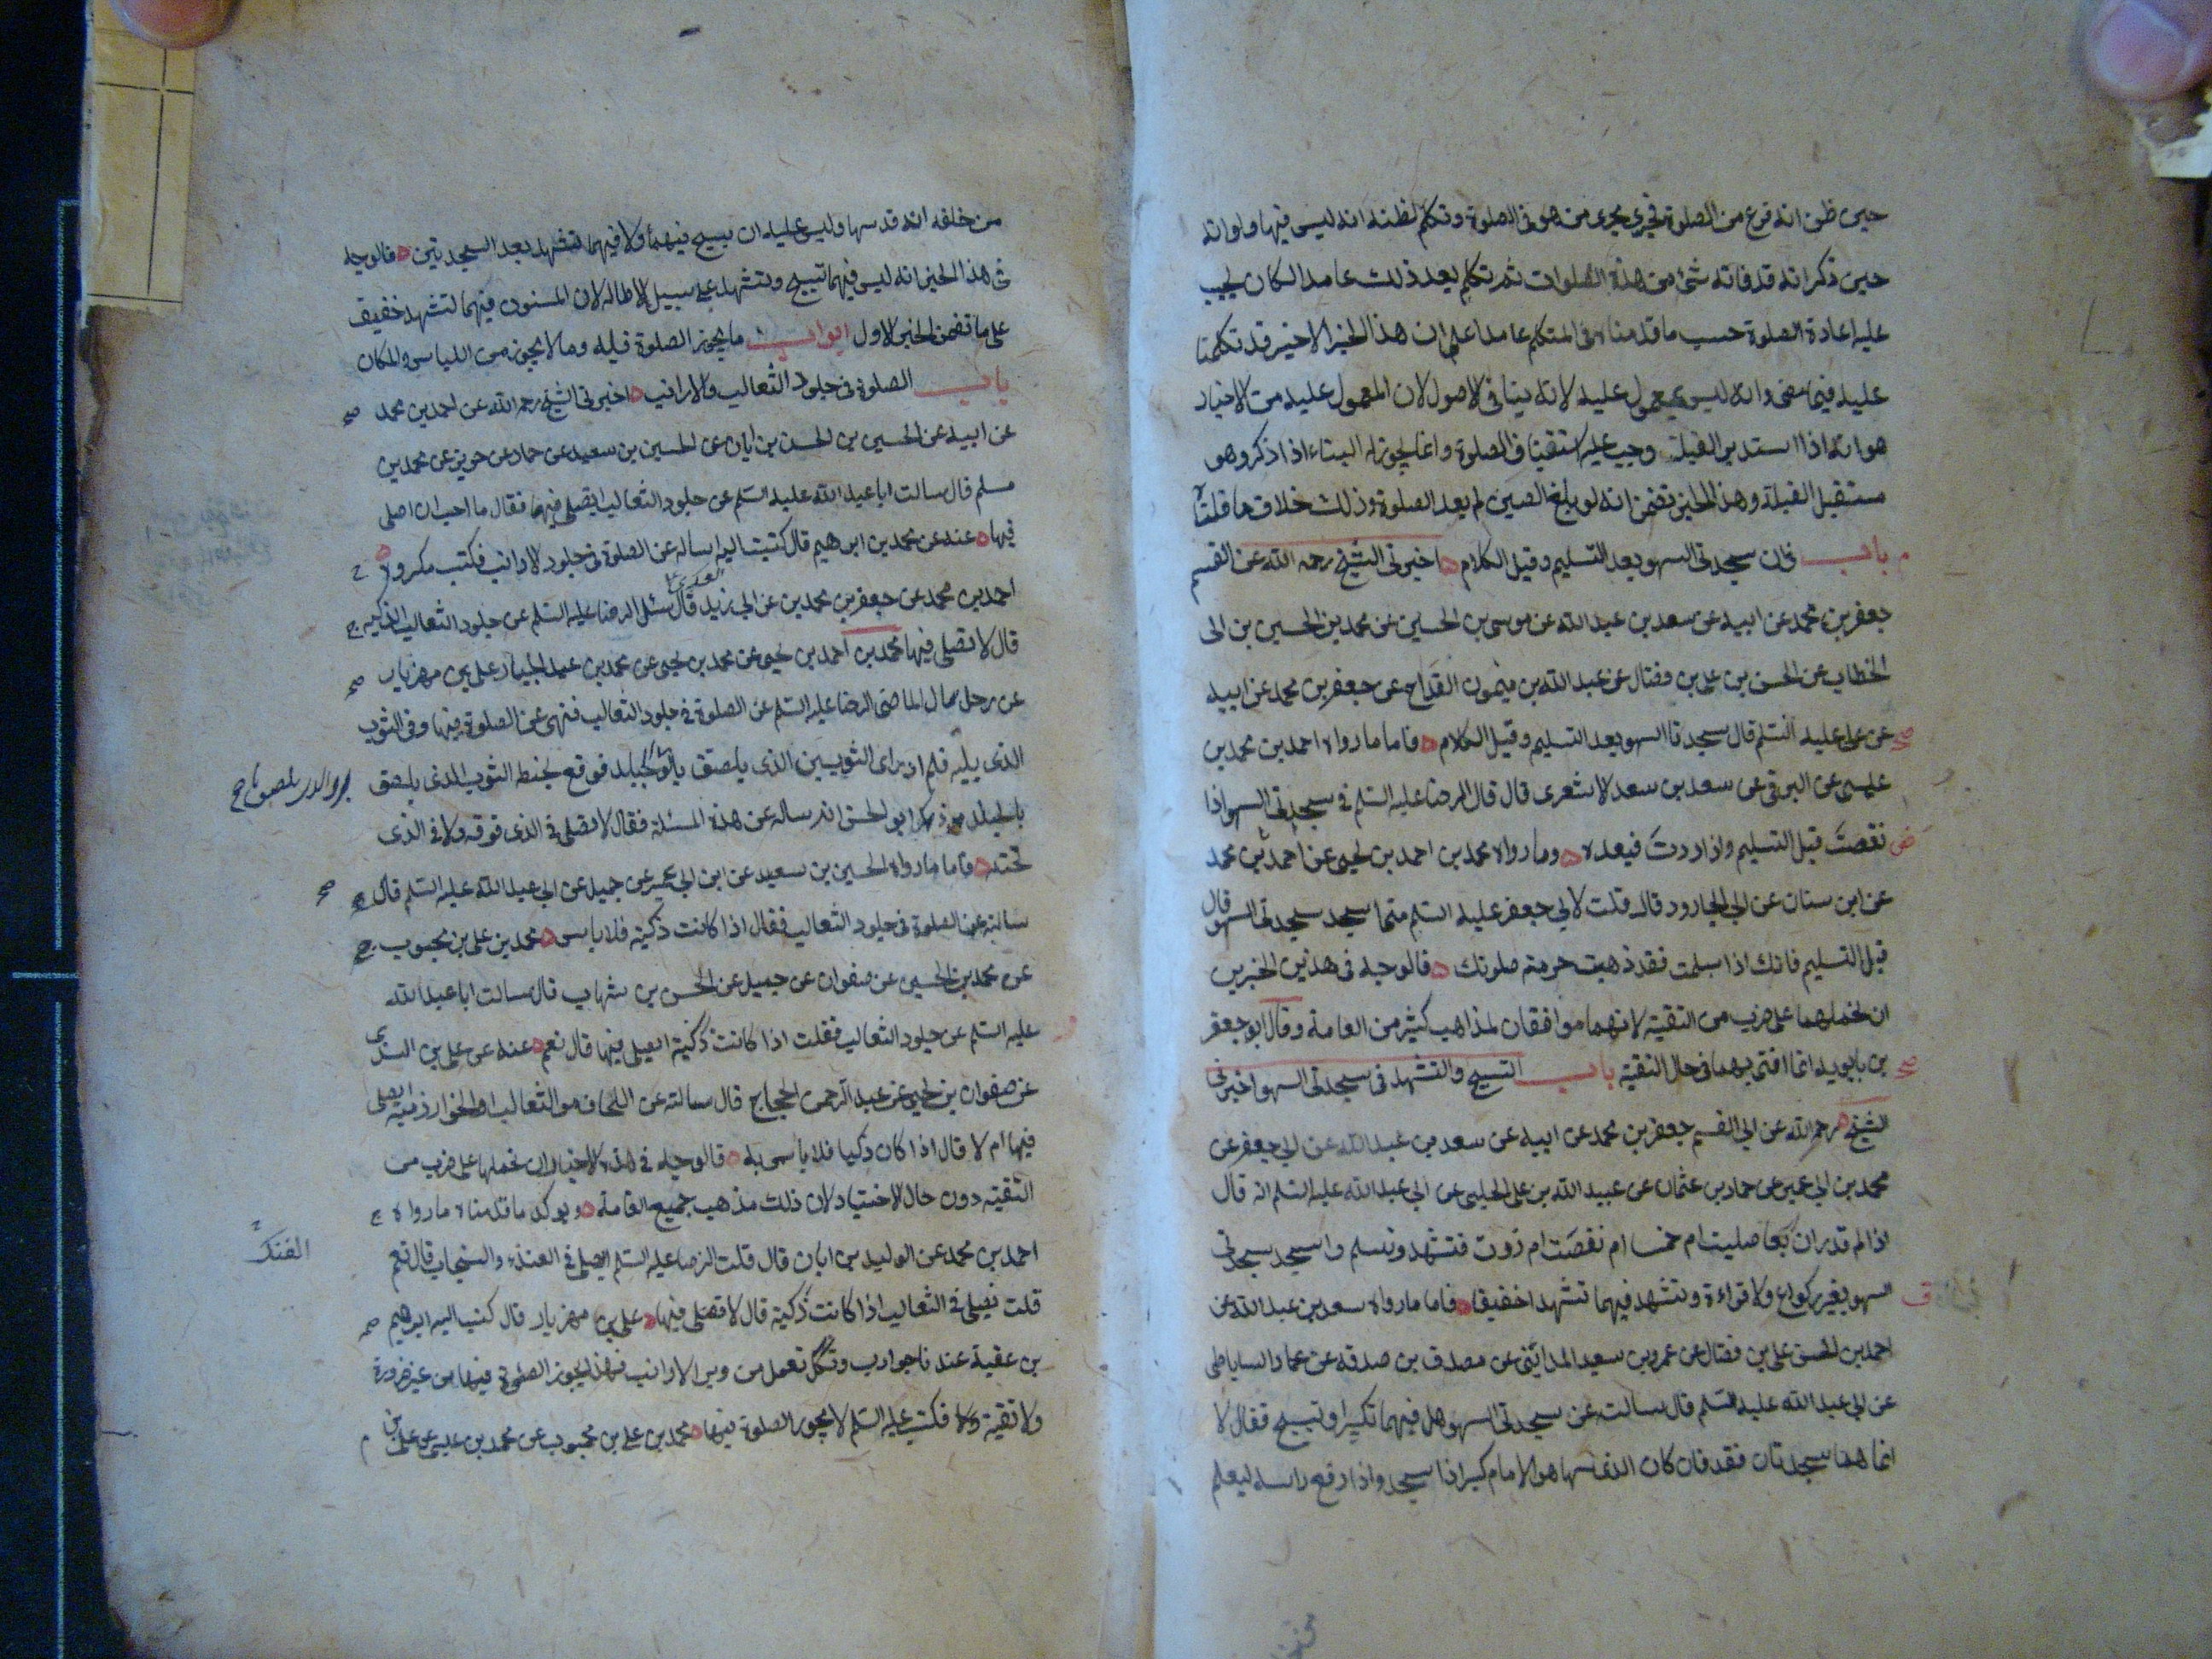 حين ظن انه فرغ من الصلوة فجرى مجرى من هو فى الصلوة وتكلم لظنه انه ليس فيها ولو انه
حين ذكر انه قد فاته شئ من هذه الصلوات ثم تكلم بعد ذلك عامدا لكان يجب
عليه اعادة الصلوة حسب ما قدمناه فى المتكلم عامدا على ان هذا الخبر الاخير قد تكلمنا
عليه فيما مضى وانه ليس بمعمول عليه لانه ينافى الاصول لان المعمول عليه من الاخبار
هو انه اذا استدبر القبلة وجب عليه استقبناف الصلوة وانما يجوز له البناء اذا ذكر وهو
مستقبل القبلة وهذا الخبر تضمن انه لو بلغ الصين لم يعد الصلوة وذلك خلاف ما قلناه
باب فى ان سجدتى السهو بعد التسليم وقبل الكلام اخبرنى الشيخ رحمه الله عن القسم
جعفر بن محمد عن ابيه عن سعد بن عبد الله عن موسى بن الحسين عن محمد بن الحسين بن ابى
الخطاب عن الحسن بن على بن فضال عن عبد الله بن ميمون القداح عن جعفر بن محمد عن ابيه
عن على عليه السلم قال سجدتا السهو بعد التسليم وقبل الكلام فاما ما رواه احمد بن محمد بن
عيسى عن البرقى عن سعد بن سعد الاشعرى قال قال الرضا عليه السلم فى سجدتى السهو اذا
نقصت قبل التسليم واذا زدت فبعده وما رواه محمد بن احمد بن يحيى عن احمد بن محمد
عن ابن سنان عن ابى الجارود قال قلت لابى جعفر عليه السلم متى اسجد سجدتى السهو قال
قبل التسليم فانك اذا سلمت فقد ذهبت حرمة صلوتك فالوجه فى هذين الخبرين
ان نحملهما على ضرب من التقية لانهما موافقان لمذاهب كثير من العامة وقال ابو جعفر
بن بابويه انما افتى بهما فى حال التقية باب التسبيح والتشهد فى سجدتى السهو اخبرنى
الشيخ رحمه الله عن ابى القسم جعفر بن محمد عن ابيه عن سعد بن عبد الله عن ابى جعفر عن
محمد بن ابى عمير عن حماد بن عثمان عن عبيد الله بن على الحلبى عن ابى عبد الله عليه السلم انه قال
اذا لم تدر اربعا صليت ام خمسا ام نقصت ام زدت فتشهد وتسلم واسجد سجدتى
السهو بغير ركوع ولا قراءة وتتشهد فيهما تشهدا خفيفا فاما ما رواه سعد بن عبد الله عن
احمد بن الحسن على بن فضال عن عمرو بن سعيد المدائنى عن مصدق بن صدقه عن عمار الساباطى
عن ابى عبد الله عليه السلم قال سالت عن سجدتى السهو هل فيهما تكبير او تسبيح فقال لا
انما هما سجدتان فقد فان كان الذى سها هو الامام كبر اذا سجد واذا رفع راسه ليعلم
من خلفه انه قد سها وليس عليه ان يسبح فيهما ولا فيهما تشهد بعد السجدتين فالوجه
فى هذا الخبر انه ليس فيهما تسبيح وتشهد على سبيل الاطالة لان المسنون فيهما تشهد خفيف
على ما تضمن الخبر الاول ابواب ما يجوز الصلوة فيه وما لا يجوز من اللباس والمكان
باب الصلوة فى جلود الثعالب والارانب اخبرنى الشيخ رحمه الله عن احمد بن محمد
عن ابيه عن الحسين بن الحسن بن ابان عن الحسين بن سعيد عن حماد عن حريز عن محمد بن
مسلم قال سالت ابا عبد الله عليه السلم عن جلود الثعالب ايصلى فيها فقال ما احب ان اصلى
فيها عنه عن محمد بن ابرهيم قال كتبت اليه اساله عن الصلوة فى جلود الارانب فكتب مكروه
احمد بن محمد عن جعفر بن محمد بن عن ابى زيد قال سئل الرضا عليه السلم عن جلود الثعالب الذكيه
قال لا تصلى فيها محمد بن احمد بن يحيى عن محمد بن يحيى عن محمد بن عبد الجبار على بن مهزيار
عن رجل سال الماضى الرضا عليه السلم عن الصلوة فى جلود الثعالب فنهى عن الصلوة فيها وفى الثوب
الذى يليه فلم ادر اى الثوبين الذى يلصق بالوبر او الجلد فوقع بخطه الثوب الذى يلصق
بالجلد وذكر ابو الحسن انه ساله عن هذه المسئلة فقال لا تصلى فى الذى فوقه ولا فى الذى
تحته فاما ما رواه الحسين بن سعيد عن ابن ابى عمير عن جميل عن ابى عبد الله عليه السلم قال
سالته عن الصلوة فى جلود الثعالب فقال اذا كانت ذكية فلا باس محمد بن على بن محبوب
عن محمد بن الحسين عن صفوان عن جميل عن الحسن بن شهاب قال سالت ابا عبد الله
عليه السلم عن جلود الثعالب فقلت اذا كانت ذكية ايصلى فيها قال نعم عنه عن على بن السندى
عن صفوان بن يحيى عن عبد الرحمن الحجاج قال سالته عن اللحاف من الثعالب او الخوارزمية ايصلى
فيها ام لا قال اذا كان ذكيا فلا باس به فالوجه فى هذه الاخبار ان نحملها على ضرب من
التقية دون حال الاختيار لان ذلك مذهب جميع العامة ويؤكد ما قدمناه ما رواه
احمد بن محمد عن الوليد بن ابان قال قلت للرضا عليه السلم ايصلى فى الفنك والسنجاب قال نعم
الفنك
قلت يصلى فى الثعالب اذا كانت ذكية قال لا تصلى فيها على بن مهزيار قال كتب اليه ابرهيم
بن عقبة عندنا جوارب وتكك تعمل من وبر الارانب فهل يجوز الصلوة فيها من غير ضرورة
ولا تقية فكتب عليه السلم لا يجوز الصلوة فيها محمد بن على بن محبوب عن محمد بن عيسى عن على بن